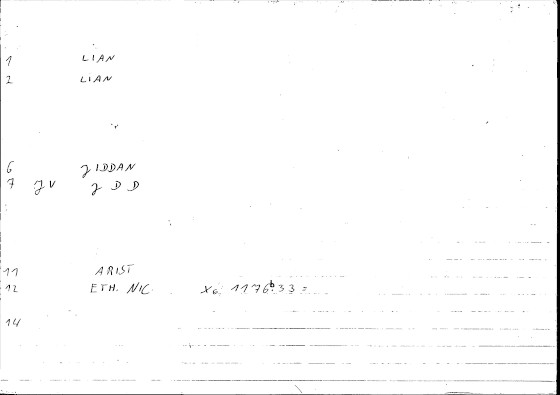 1 LIAN
2 LIAN
6 JIDDAN
7 JV J D D
11 ARIST
12 ETH. NIC. X6 1176b33 =
14